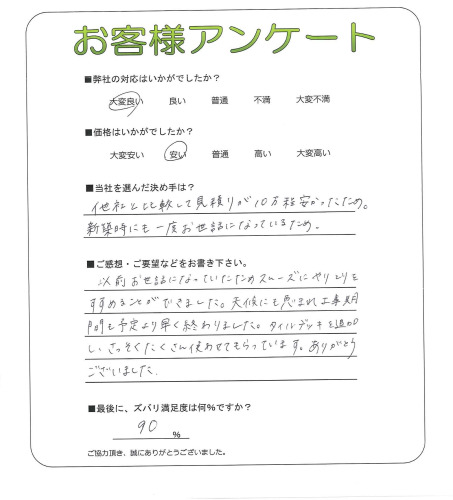 お客様アンケート
■弊社の対応はいかがでしたか？
大変良い 良い 普通 不満 大変不満
■価格はいかがでしたか？
大変安い 安い 普通 高い 大変高い
■当社を選んだ決め手は？
他社と比較して見積りが10万程安かったため。
新築時にも一度お世話になっているため。
■ご感想・ご要望などをお書き下さい。
以前お世話になっていたためスムーズにやりとりを
すすめることができました。天候にも恵まれ工事期
間も予定より早く終わりました。タイルデッキを追加
し、さっそくたくさん使わせてもらっています。ありがとう
ございました.
■最後に、ズバリ満足度は何%ですか？
90 %
ご協力頂き、誠にありがとうございました。